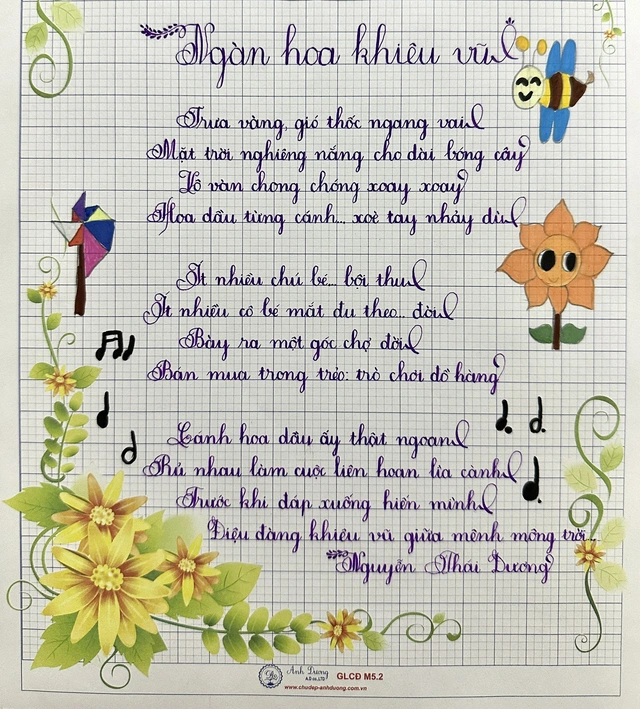 Ngàn hoa khiêu vũ
Trưa vàng, gió thốc ngang vai
Mặt trời nghiêng nắng cho dài bóng cây
Vô vàn chong chóng xoay xoay
Hoa dầu từng cánh... xoè tay nhảy dù
Ít nhiều chú bé... bội thu
Ít nhiều cô bé mắt đu theo... đòi
Bày ra một góc chợ đời
Bán mua trong trẻo: trò chơi đồ hàng
Cánh hoa dầu ấy thật ngoan
Rủ nhau làm cuộc liên hoan lìa cành
Trước khi đáp xuống hiến mình
Điệu đàng khiêu vũ giữa mênh mông trời...
Nguyễn Thái Dương
Ánh Dương
A.D co.,LTD
GLCĐ M5.2
www.chudep-anhduong.com.vn